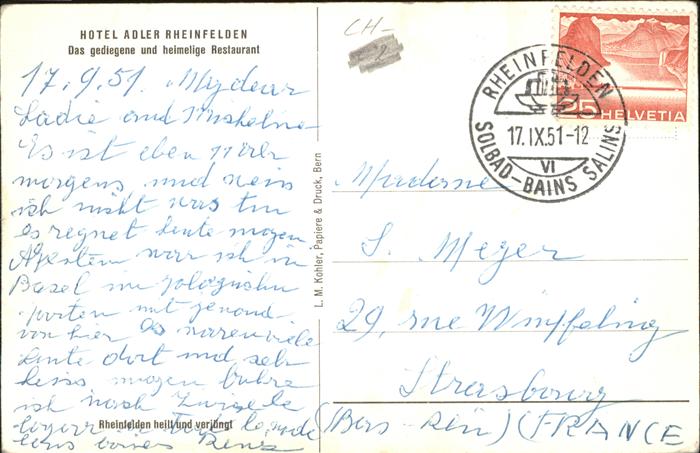 HOTEL ADLER RHEINFELDEN
Das gediegene und heimelige Restaurant
17.9.51. My dear
Ladie and
Es ist eben 11 Uhr
morgens und weis
ich nicht was tun
es regnet heute morgen
Gestern war ich in
Basel im zologischen
garten mit jemand
von hier es waren viele
Leute dort und sehr
heiss morgen fahre
ich nach
Rheinfelden heilt und verjüngt
bons baisers
L. M. Kohler, Papiere & Druck, Bern
CH-
2
RHEINFELDEN
17.IX.51-12
VI
SOLBAD-BAINS SALINS
25 HELVETIA
Madame
S. Meyer
29, rue Wimpfeling
Strasbourg
(Bas-Rin) (FRANCE